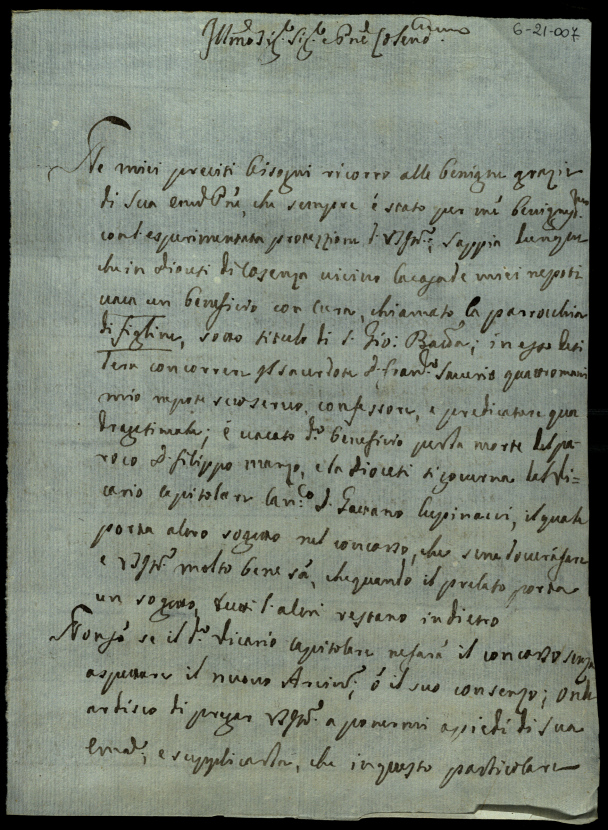 6-21-007
Illmo Sig.r Sig.r e Pne Colenmo
Ne miei precisi bisogni ricorro alle benigne grazie
di Sua emd Pne, che sempre è stato per mè benignmo
con l'esperimentata protezzione di VSIll; Sappia dunque
che in diocesi di Cosenza vicino la casa de miei neposti
vaca un beneficio con cura, chiamato la parrocchia
di figline, sotto titulo di S. Gio: Batta; in esso desi
dera concorrere il sacerdote D. Franco Saverio quattromani
mio nepote suo servo, confessore, e predicatore qua
dragesimale; è vacato do beneficio per la morte del pa-
roco D. Filippo manzo, e la diocesi si governa dal Vi-
cario capitolare Canco D. Gaetano Lupinacci, il quale
porta altro sogetto nel concorso, che
e VSIll molto bene sà, che quando il prelato porta
un sogetto, tutti l'altri restano indietro
Non sò se il do Vicario capitolare nefarà il concorso senza
aspettare il nuovo Arciv, ò il suo consenzo; onde
ardisco di pregar VSIll a ponermi a piedi di Sua
Emad, e supplicarla, che in questo particolare